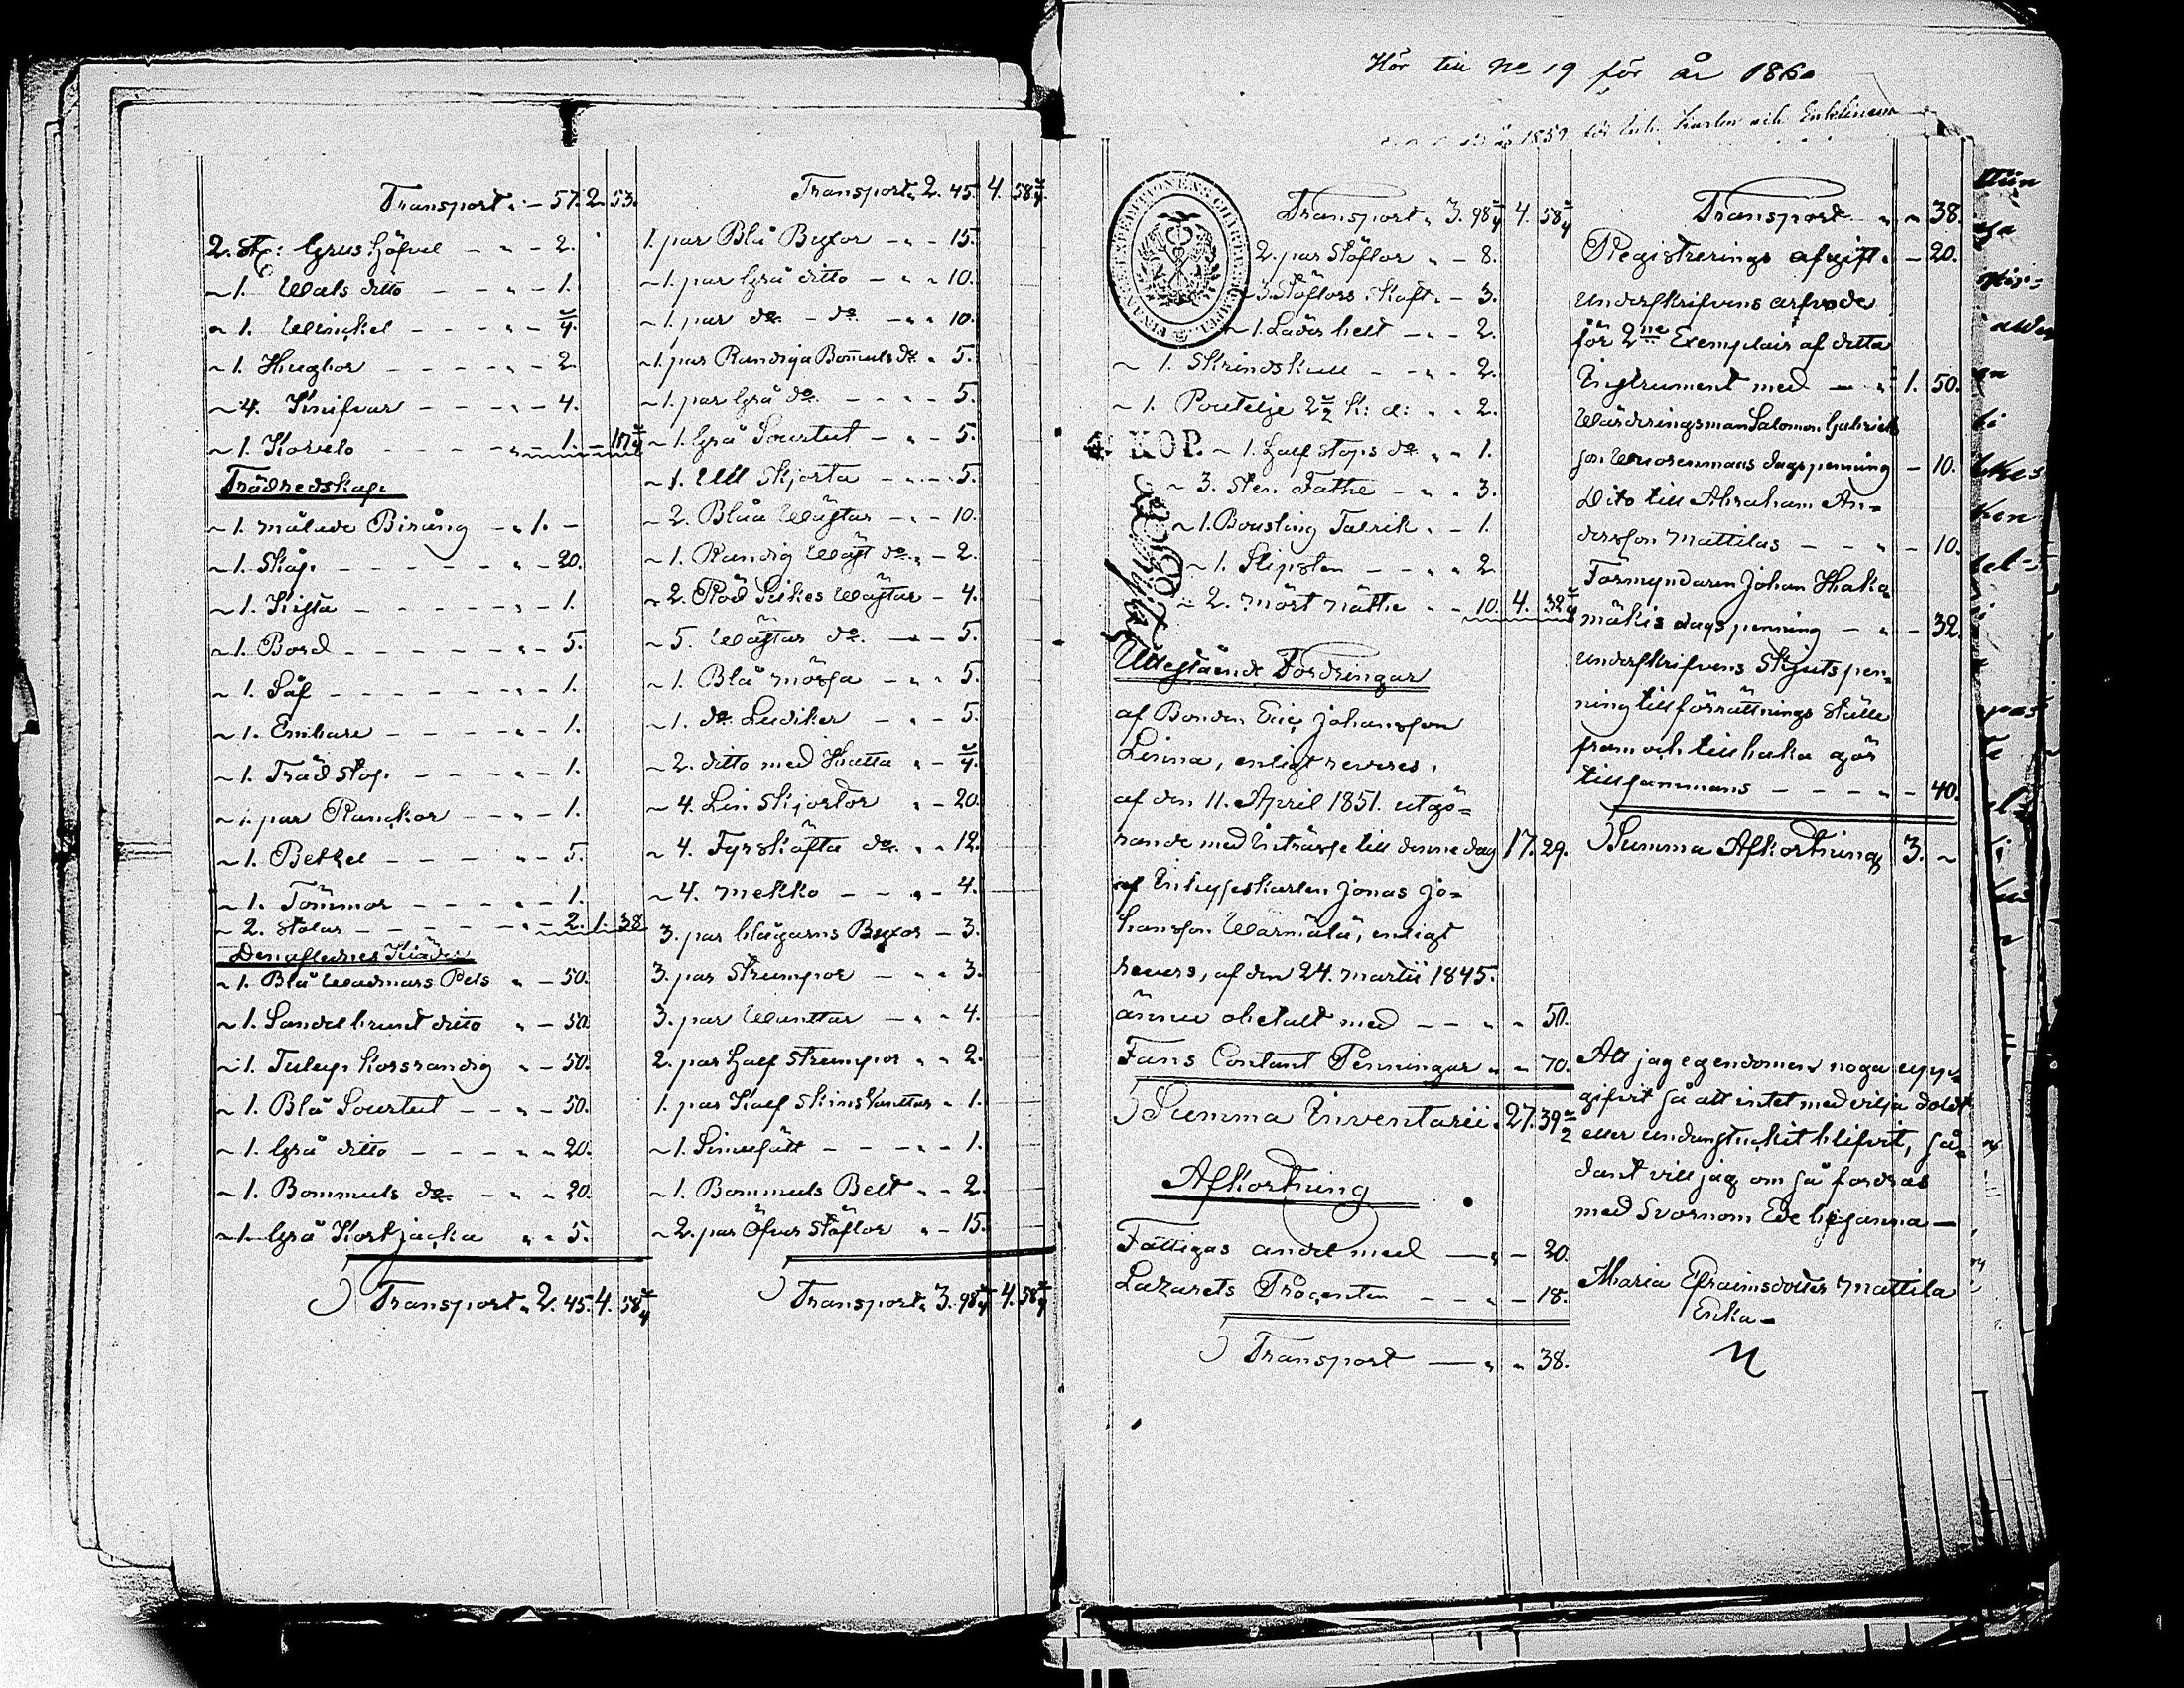 Transport „ – 57. 2. 53.
2. st: Grus höfvel – „ – 2.
~ 1. Wals ditto – – „ – 1.
~ 1. Winckel – – „ – ¾.
~ 1. Hughor – – – „ – 2.
~ 4. Knifvar – – – „ – 4.
~ 1. Korvelo – – – „ – 1. –
Trädredskap.
~ 1. målade Birång – „ 1. –
~ 1. Skåp. – – – – – „ – 20.
~ 1. Kista – – – – – „ – 1.
~ 1. Bord – – – – – „ – 5.
~ 1. Såf – – – – – „ – 1.
~ 1. Embare – – – – „ – 1.
~ 1. Träd stop. – – – „ – 1.
~ 1. par Ranckor – – „ – 1.
~ 1. Betzel – – – „ – 5.
~ 1. Tömmar – – – „ – 1.
~ 2. Stolar – – – – „ – 2. 1. 38
Den aflednes Kläder
~ 1. Blå Wadmars Pels „ – 50.
~ 1. Sandel brunt ditto „ – 50.
~ 1. Tulup korsrandig „ – 50.
~ 1. Blå Sourtut – – „ – 50.
~ 1. Grå ditto – – – – „ 20.
~ 1. Bommuls do – „ – 20.
~ 1. Grå Kortjacka „ – 5.
Transport „ 2. 45. 4. 58¾
Transport „ 2. 45. 4. 58¾
1. par Blå Byxor – „ – 15.
~ 1. par Grå ditto – „ – 10.
~ 1. par do – do – „ – 10.
~ 1. par Randiga Bom̄uls do „ 5.
~ 1. par Grå do – – „ – 5.
~ 1. Grå Sourtut – „ – 5.
~ 1. Ull Skjorta – „ – 5.
~ 2. Blåa Wästar – „ – 10.
~ 1. Randig Wäst do „ – 2.
~ 2. Röd Silkes Wästar – 4.
~ 5. Wästar do – „ – 5.
~ 1. Blå mössa – „ – 5.
~ 1. do Ludiker – „ – 5.
~ 2. ditto med Skatta „ – ¾.
~ 4. Lin Skjortor „ – 20.
~ 4. Fyrskäfta do „ – 12.
~ 4. Mekko – – „ – 4.
3. par blågarns Byxor – 3.
3. par Strumpor – „ – 3.
3. par Wanttar – „ – 4.
2. par Half Strumpor „ – 2.
1. par Kalf Skins Vanttar – 1.
~ 1. – – „ – 1.
~ 1. Bommuls Belt „ – 2.
~ 2. par Öfver Stöflor „ – 15.
Transport „ 3. 98¾ 4. 58¾
Hör till No 19 för år 1860
1859 för Inh. Karlen och Enklingen
Transport „ 3. 98¾ 4. 58¾
2. par Stöflor „ – 8.
~ 3. Stöflors Skaft „ – 3.
~ 1. Läder belt – „ – 2.
~ 1. Skrindskull – „ – 2.
~ 1. Poutelje 2½ K: d: „ – 2.
4. KOP. ~ 1. Half stops do „ – 1.
~ 3. Sten Fathe – „ – 3.
~ 1. Bousling Talrik „ – 1.
~ 1. Slipsten – – „ – 2.
~ 2. mört näthe „ – 10. 4. 32¾
Utestående Fordringar
af Bonden Eric Johansson
Linna, enligt revers,
af den 11. April 1851. utgö-
rande med Inträsse till denna dag 17. 29.
af Inhyseskarlen Jonas Jo-
hansson Wärmälä, enligt
revers, af den 24. Martii 1845.
ännu obetalt med – – „ – 50.
Fans Contant Penningar „ – 70.
Summa Inventarii. 27. 39½
Afkortning
Fattigas andel med – „ – 20.
Lazarets Procenten – – „ – 18.
Transport – „ – 38.
Transport „ – 38.
Registrerings afgift „ – 20.
Underskrifvens arfvode
för 2ne Exemplair af detta
Instrument med – „ 1. 50.
Wärderingsman Salomon Gabriels
son Wuorenmaas dagspenning – 10.
Dito till Abraham An-
dersson Mattilas – – „ – 10.
Förmyndaren Johan Haka
mäkis dagspenning – „ – 32.
Underskrifvens Skjutspen-
ning till förrättnings ställe
fram och tillbaka gör
tillsammans – – – „ – 40.
Summa Afkortning 3. ~
Att jag egendomen noga upp-
gifvit så att intet med vilja doldt
eller undanstuckit blifvit, så-
dant vill jag om så fordras
med Svornom Ede besanna –
Maria Efraimsdotter Mattila
Enka –